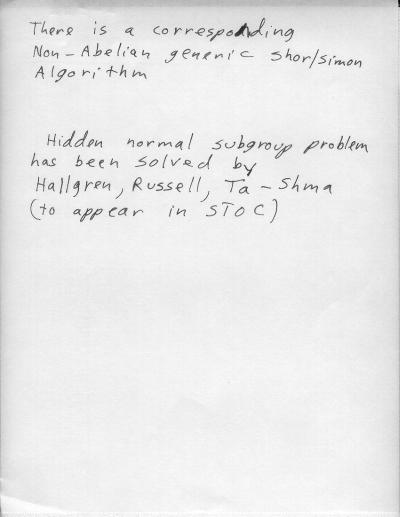 There is a corresponding
Non-Abelian generic Shor/Simon
Algorithm
Hidden normal subgroup problem
has been solved by
Hallgren, Russell, Ta-Shma
(to appear in STOC)